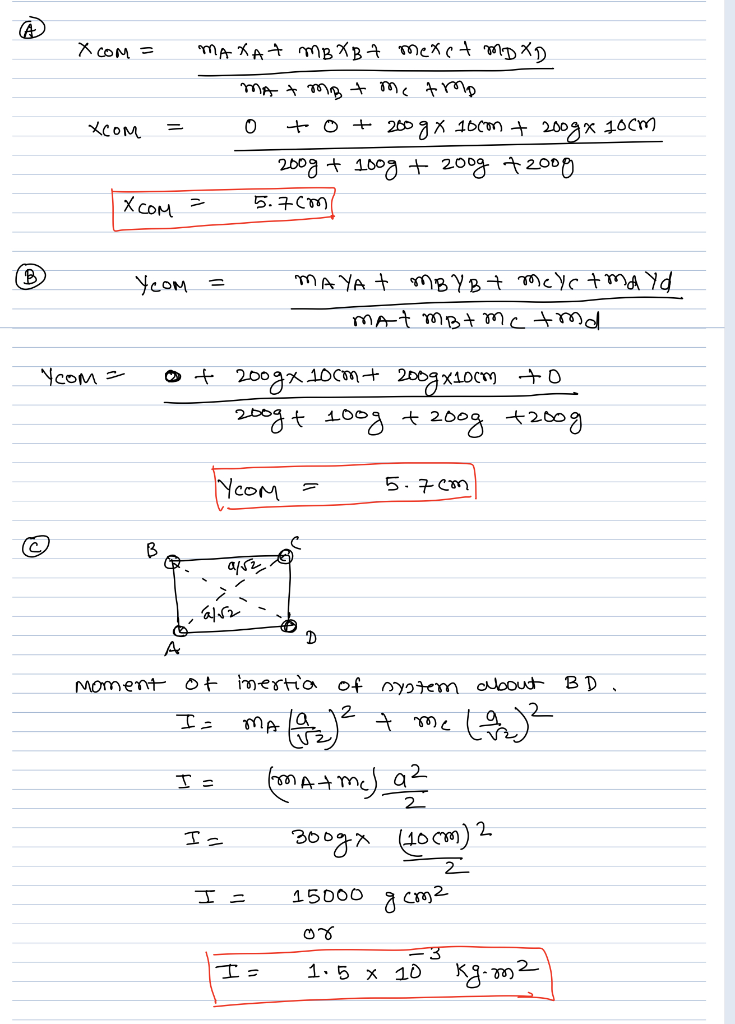 Ⓐ
X COM = mA XA + mB XB + mC XC + mD XD
mA + mB + mC + mD
XCOM = 0 + 0 + 200g x 10cm + 200g x 10cm
200g + 100g + 200g + 200g
XCOM = 5.7cm
Ⓑ
YCOM = mA YA + mB YB + mC YC + md Yd
mA + mB + mC + md
YCOM = 0 + 200g x 10cm + 200g x 10cm + 0
200g + 100g + 200g + 200g
YCOM = 5.7cm
Ⓒ
B C
a/√2
a/√2
A D
Moment of inertia of system about BD.
I = mA (a/√2)² + mC (a/√2)²
I = (mA + mC) a²
2
I = 300g x (10cm)²
2
I = 15000 g cm²
or
I = 1.5 x 10⁻³ Kg.m²